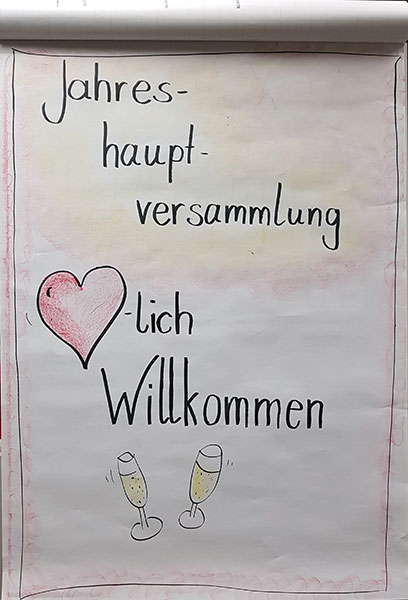 Jahres-
haupt-
versammlung
-lich
Willkommen